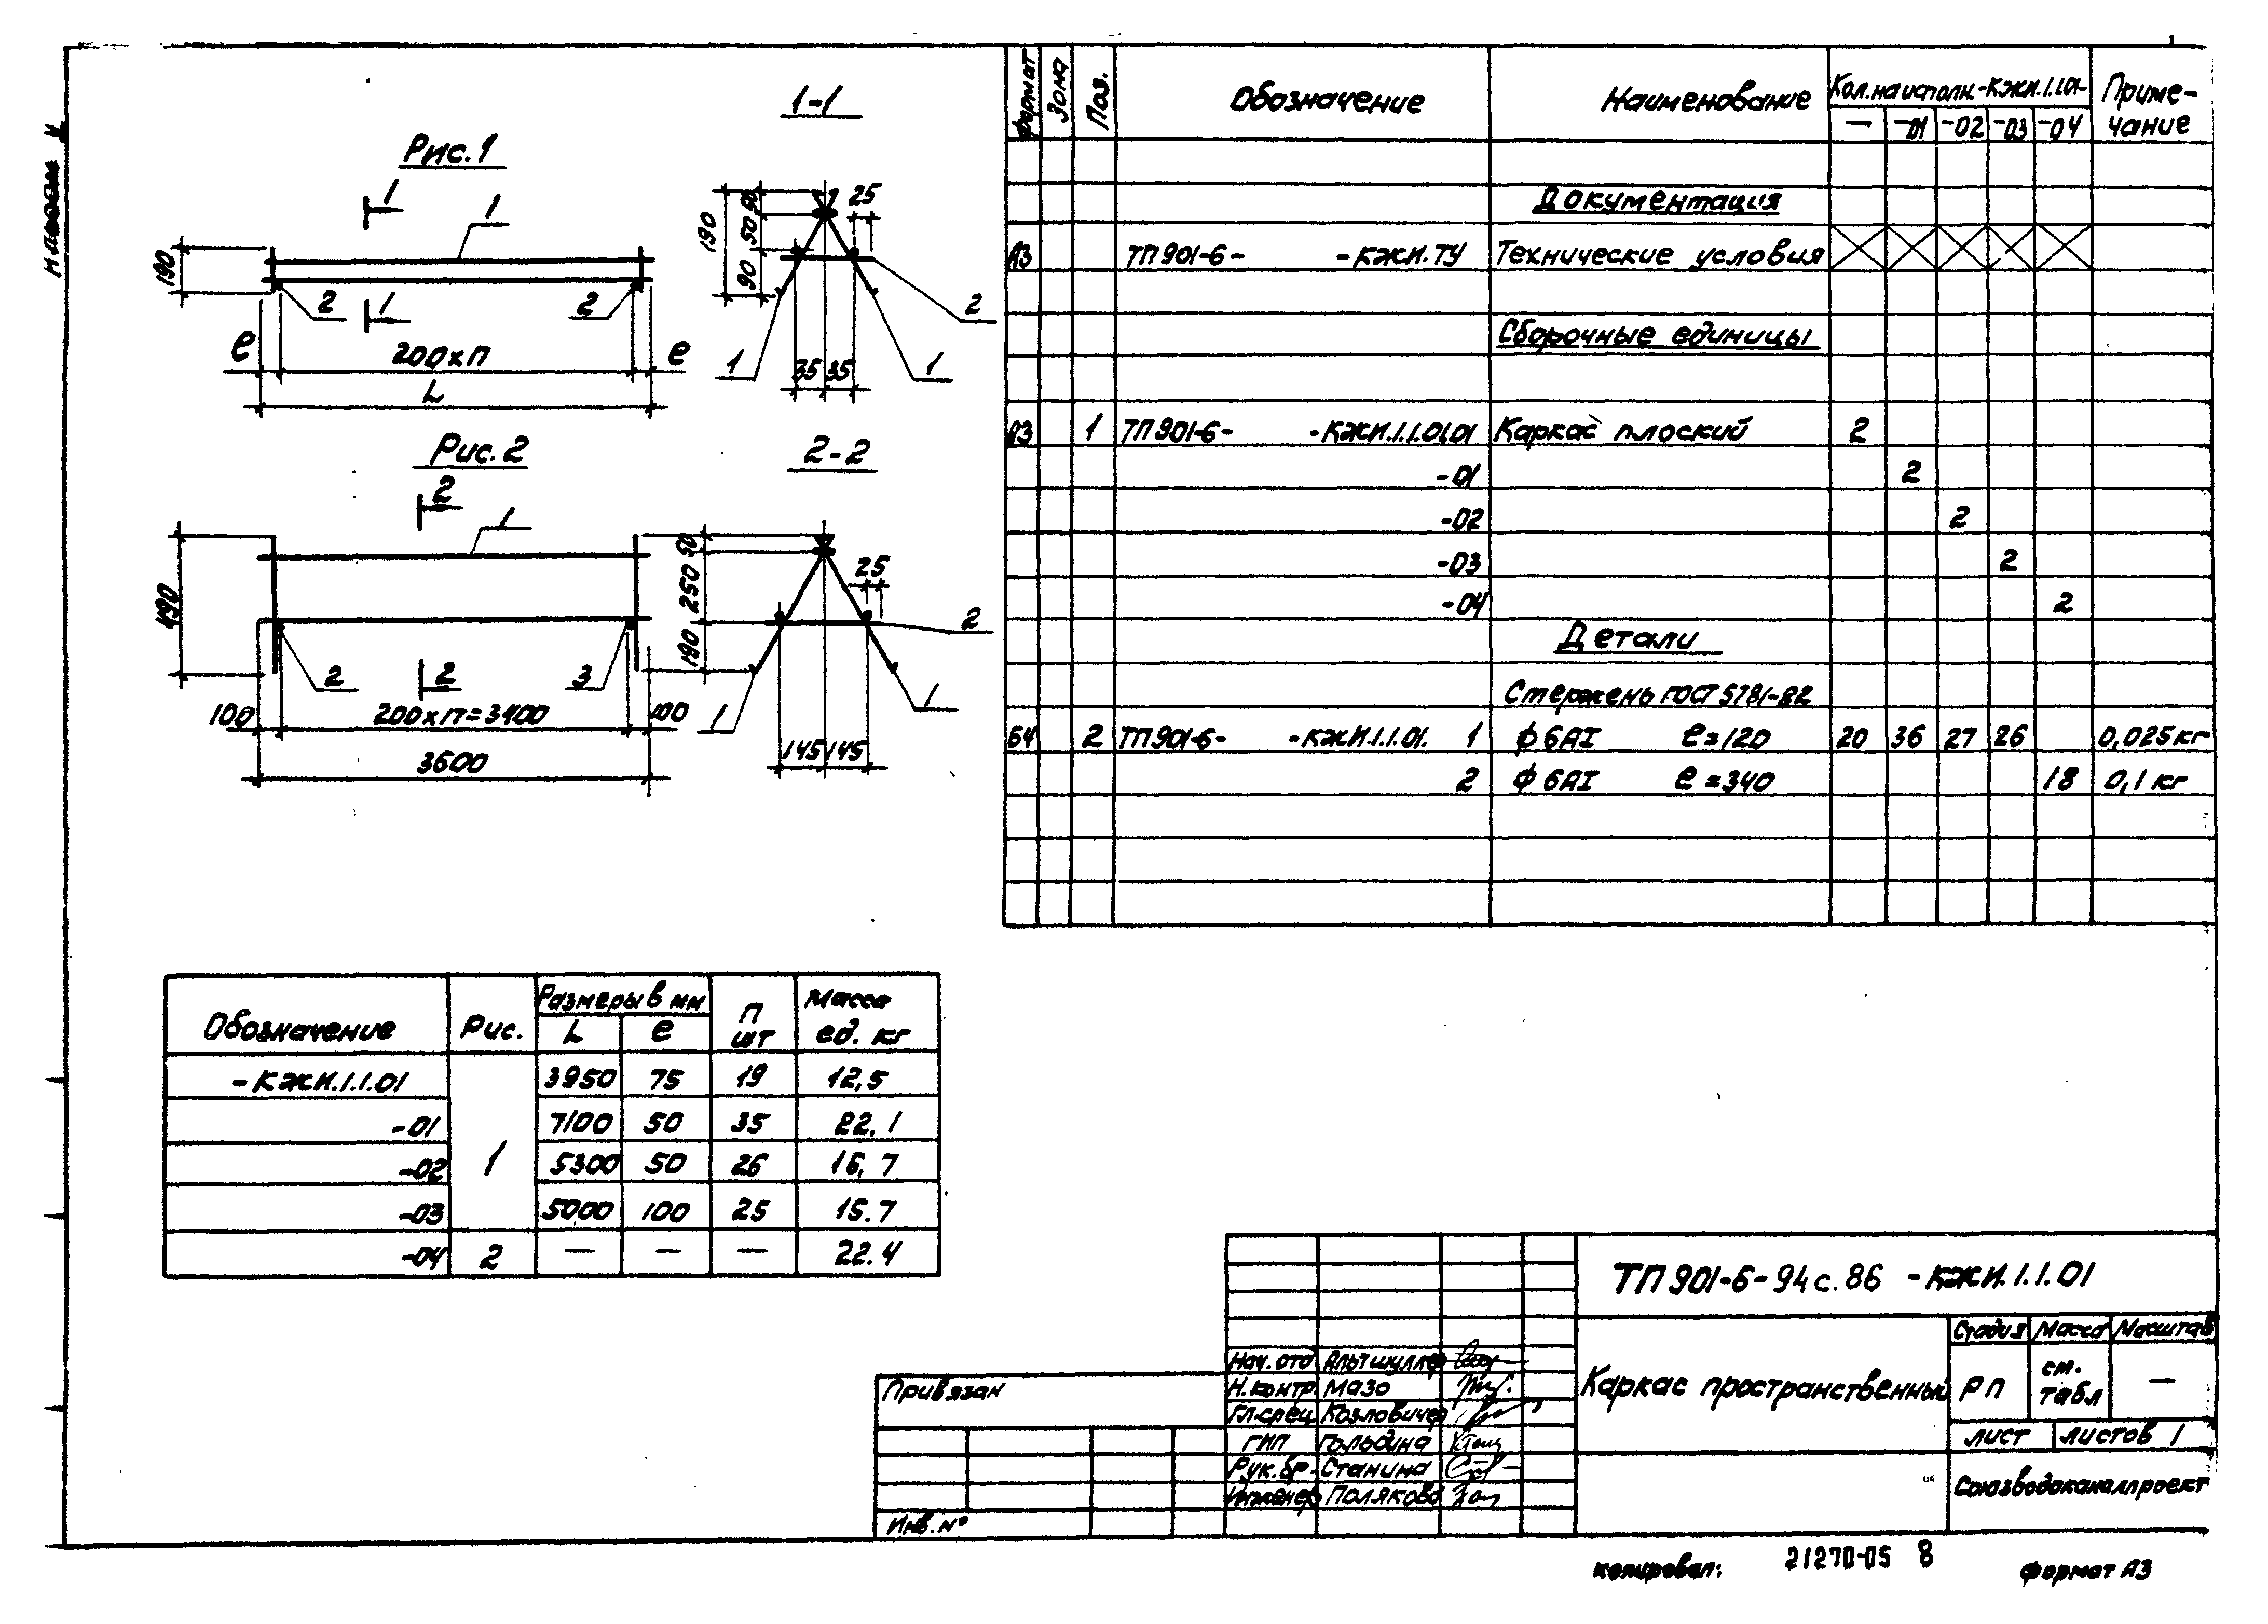 Рис. 1
1
1
190
2
1
2
е
200хп
е
L
1-1
190
50
50
90
25
2
1
35
35
1
Рис. 2
2
1
490
2
2
3
100
200х17=3400
100
3600
2-2
50
250
190
25
2
1
145
145
1
Формат
Зона
Поз.
Обозначение
Наименование
Кол. на исполн. -КЖИ.1.1.01-
Приме-
чание
— -01 -02 -03 -04
Документация
А3 ТП 901-6- -КЖИ.ТУ Технические условия
Сборочные единицы
А3 1 ТП 901-6- -КЖИ.1.1.01.01 Каркас плоский 2
-01 2
-02 2
-03 2
-04 2
Детали
Стержень ГОСТ 5781-82
Б4 2 ТП 901-6- -КЖИ.1.1.01. 1 ф 6АI е=120 20 36 27 26 0,025 кг
2 ф 6АI е=340 18 0,1 кг
Обозначение Рис. Размеры в мм П шт Масса ед. кг
L е
-КЖИ.1.1.01 1 3950 75 19 12,5
-01 7100 50 35 22.1
-02 5300 50 26 16,7
-03 5000 100 25 15.7
-04 2 — — — 22.4
ТП 901-6-94с.86 -КЖИ.1.1.01
Каркас пространственный
Стадия Масса Масштаб
РП см. табл —
лист листов 1
Союзводоканалпроект
Нач. отд Альтшуллер
Н.контр Мазо
Гл.спец Козловичер
ГИП Гольдина
Рук.бр. Станина
Инженер Полякова
Привязан
Инв. №
копировал:
21270-05 8
формат А3